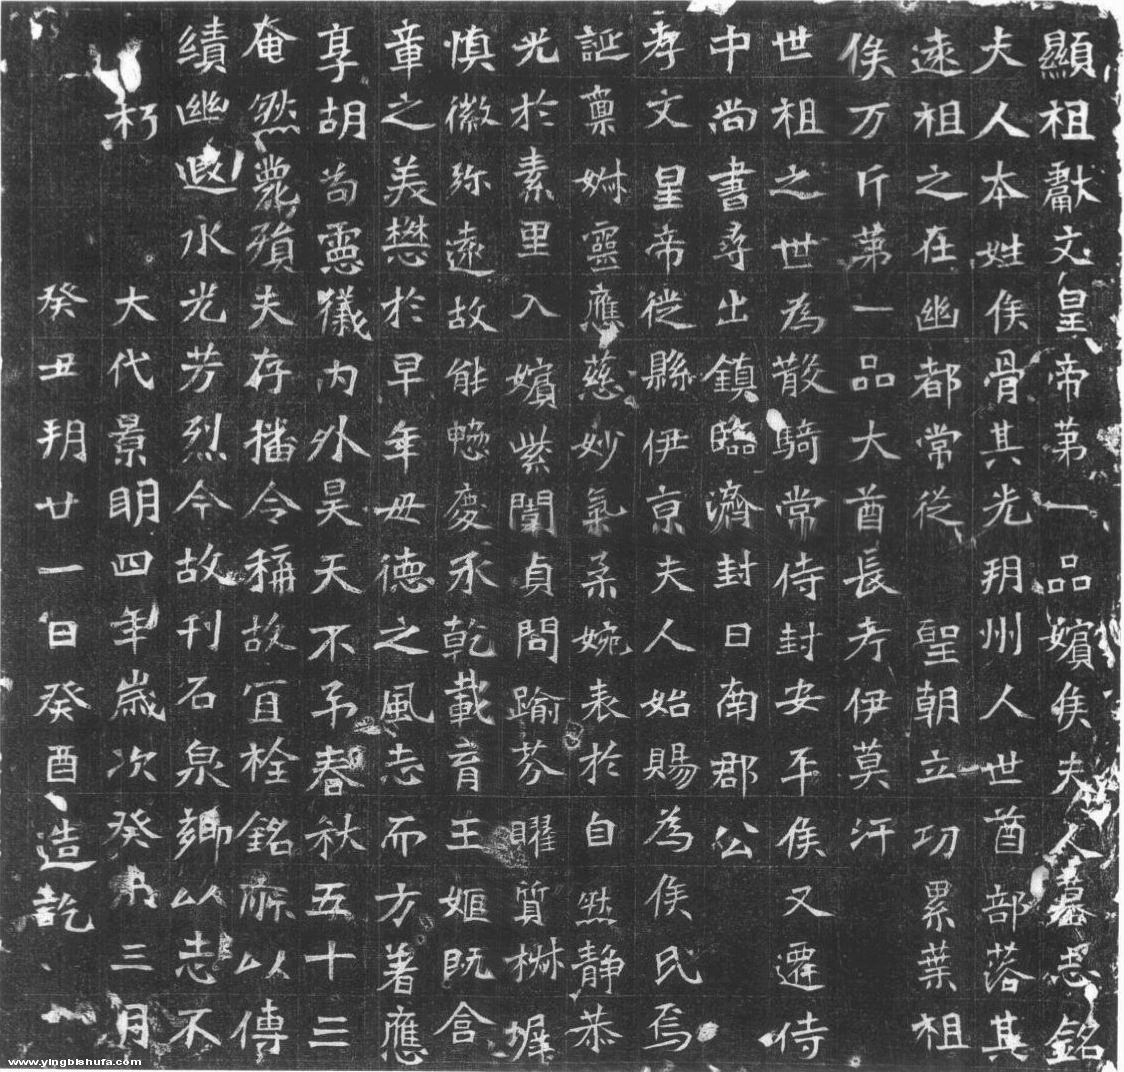 顯祖獻文皇帝第一品嬪侯夫人墓志銘
夫人本姓侯骨其先朔州人世酋部落其
遠祖之在幽都常從 聖朝立功累葉祖
俟万斤第一品大酋長考伊莫汗
世祖之世為散騎常侍封安平侯又遷侍
中尚書尋出鎮臨濟封日南郡公
孝文皇帝從縣伊京夫人始賜為侯氏焉
誕稟婌靈應慈妙氣柔婉表於自然靜恭
光於素里入嬪紫闈貞問踰芬曜質椒墀
慎徽弥遠故能慜慶承乾載育王姬既含
章之美懋於早年毋德之風志而方著應
享胡耇憲儀内外昊天不弔春秋五十三
奄然薨殞夫存播令稱故宜栓銘所以傳
績幽遐水光芳烈今故刊石泉鄉以志不
朽
大代景明四年歲次癸未三月
癸丑朔廿一日癸酉造訖
www.yingbishufa.com